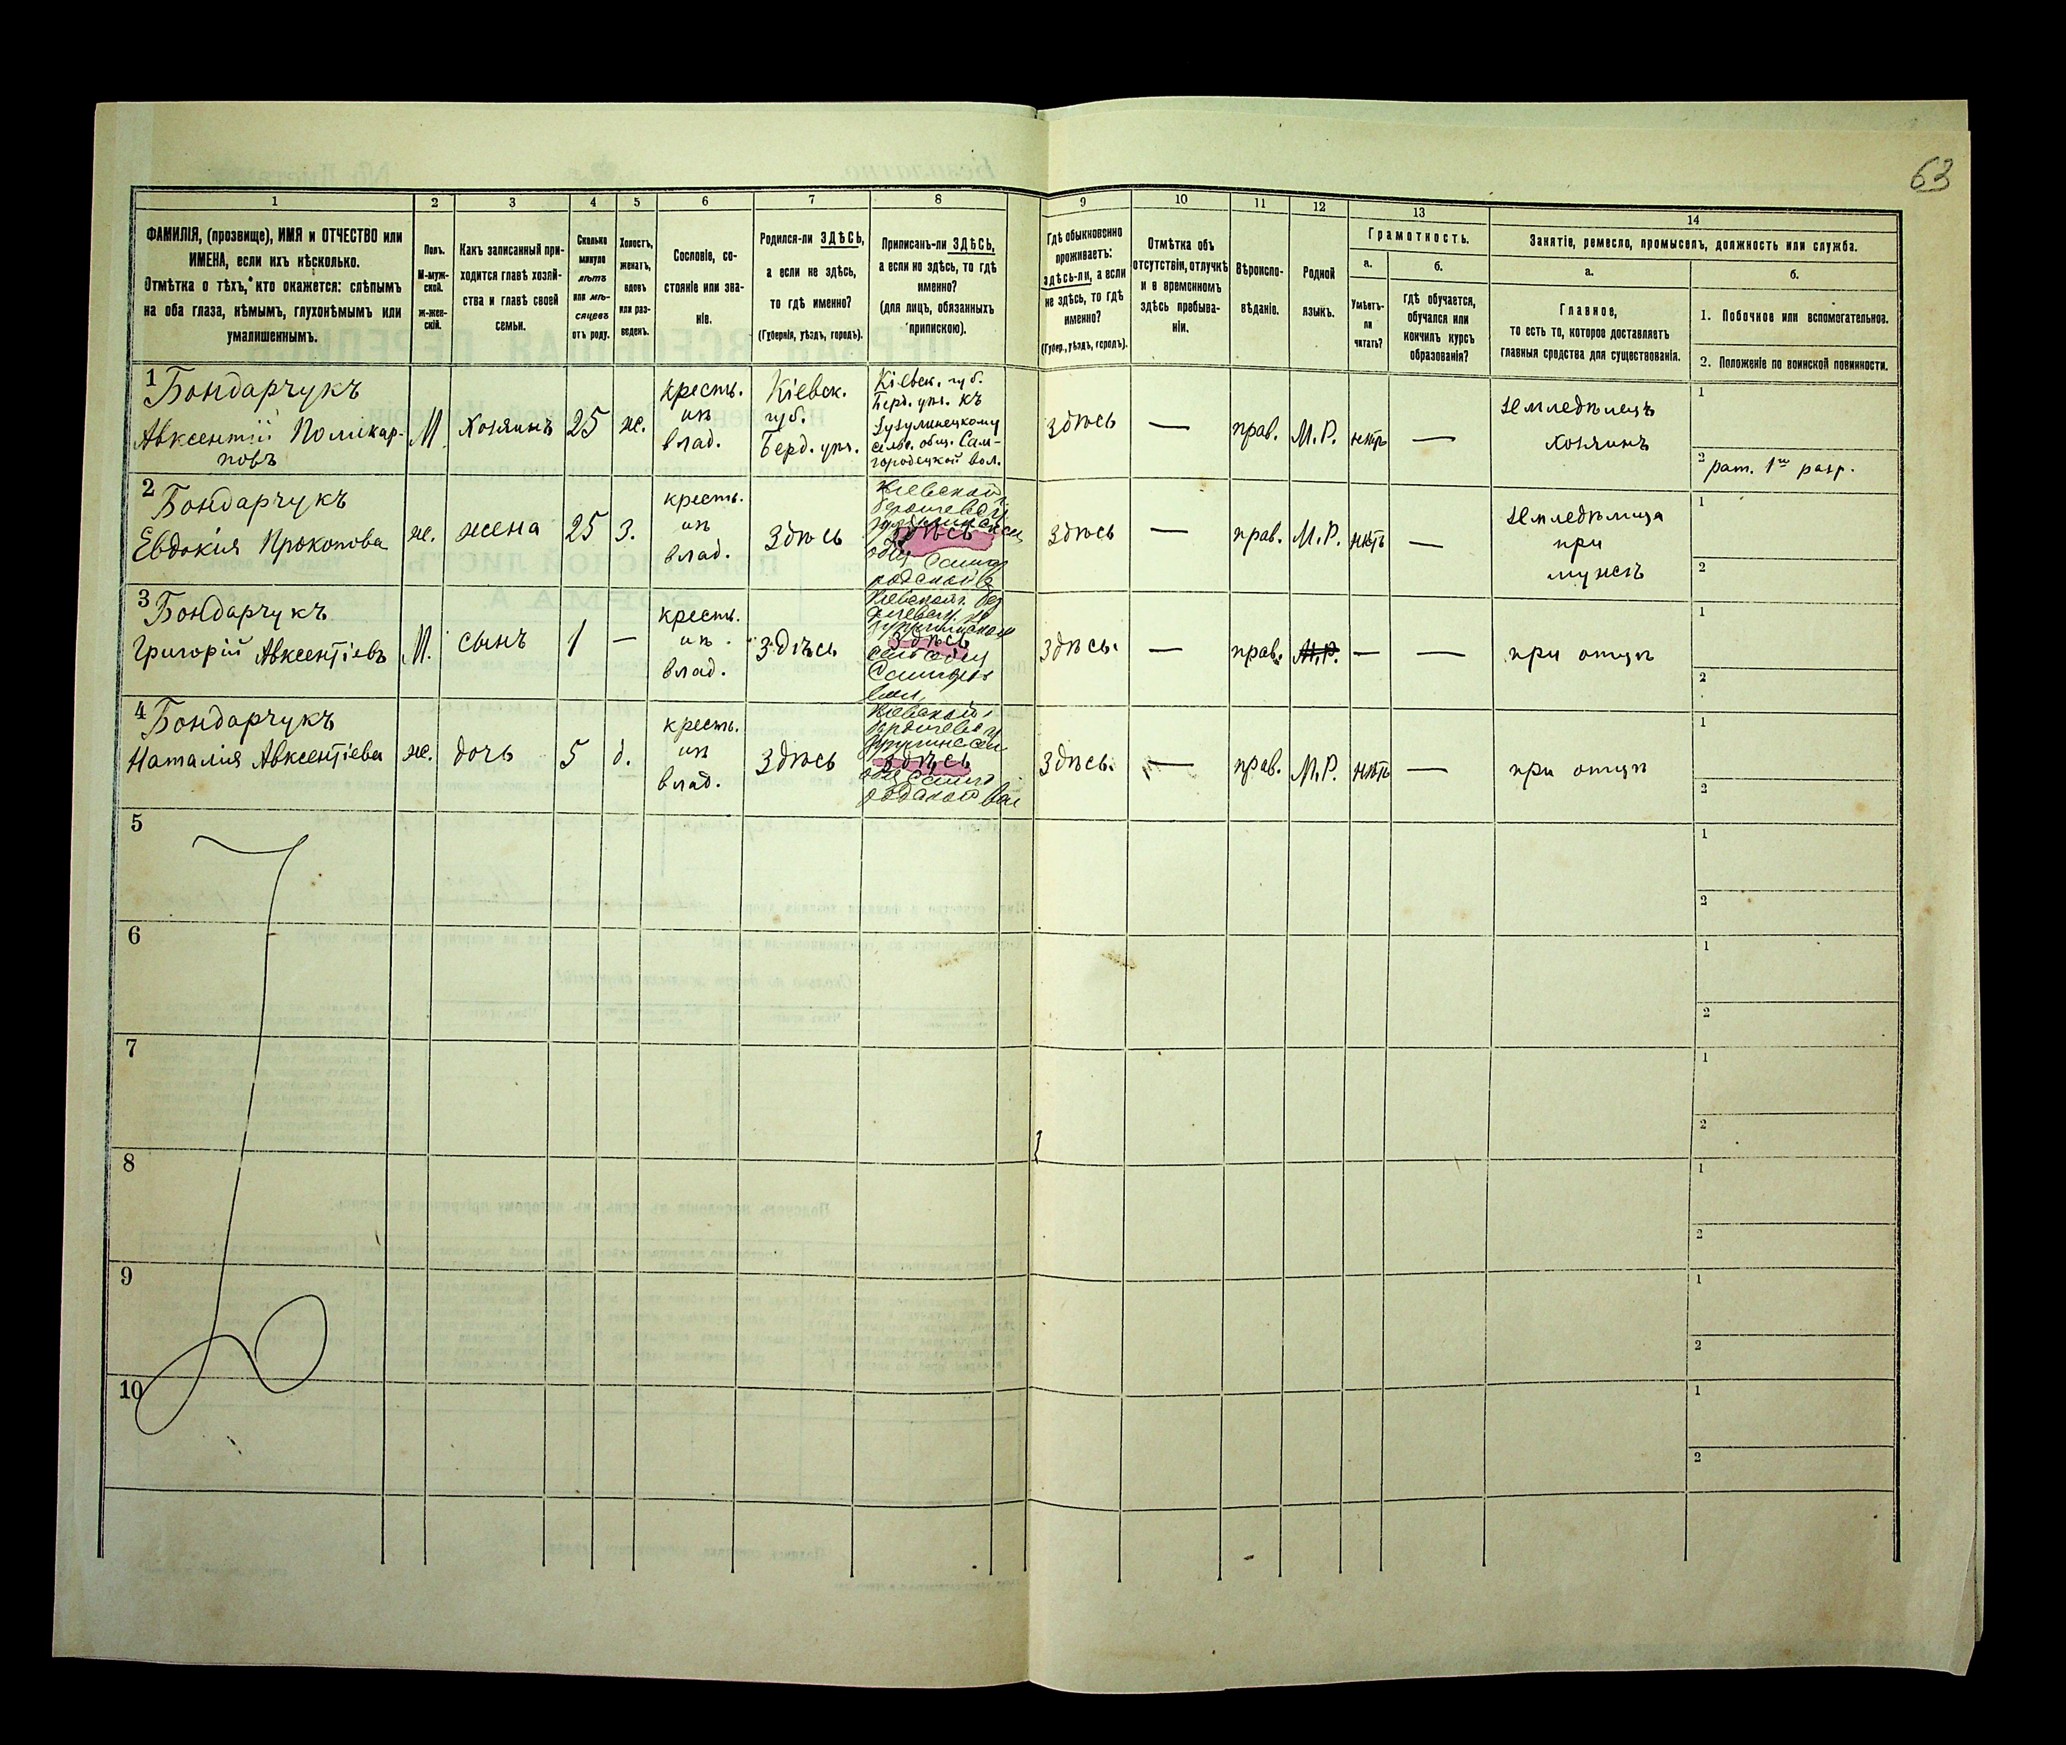 63
1
2
3
4
5
6
7
8
9
10
11
12
13
14
ФАМИЛІЯ, (прозвище), ИМЯ и ОТЧЕСТВО или
ИМЕНА, если ихъ нѣсколько.
Отмѣтка о тѣхъ, кто окажется: слѣпымъ
на оба глаза, нѣмымъ, глухонѣмымъ или
умалишеннымъ.
Полъ.
М-муж-
ской.
Ж-жен-
скій.
Какъ записанный при-
ходится главѣ хозяй-
ства и главѣ своей
семьи.
Сколько
минуло
лѣтъ
или мѣ-
сяцевъ
отъ роду.
Холостъ,
женатъ,
вдовъ
или раз-
веденъ.
Сословіе, со-
стояніе или зва-
ніе.
Родился-ли ЗДѢСЬ,
а если не здѣсь,
то гдѣ именно?
(Губернія, уѣздъ, городъ).
Приписанъ-ли ЗДѢСЬ,
а если не здѣсь, то гдѣ
именно?
(для лицъ, обязанныхъ
припискою).
Гдѣ обыкновенно
проживаетъ:
здѣсь-ли, а если
не здѣсь, то гдѣ
именно?
(Губер., уѣздъ, городъ).
Отмѣтка объ
отсутствіи, отлучкѣ
и о временномъ
здѣсь пребыва-
ніи.
Вѣроиспо-
вѣданіе.
Родной
языкъ.
Грамотность.
а.
Умѣетъ-
ли
читать?
б.
гдѣ обучается,
обучался или
кончилъ курсъ
образованія?
Занятіе, ремесло, промыселъ, должность или служба.
а.
Главное,
то есть то, которое доставляетъ
главныя средства для существованія.
б.
1. Побочное или вспомогательное.
2. Положеніе по воинской повинности.
1 Бондарчукъ
Авксентій Поликар-
повъ
М
хозяинъ
25
ж.
кресть.
изъ
влад.
Кіевск.
губ.
Берд. уѣз.
Кіевск. губ.
Берд. уѣз. къ
сельс. общ. Сам-
городецкой вол.
здѣсь
—
прав.
М.Р.
нѣтъ
—
земледѣлецъ
хозяинъ
1
2 рат. 1го разр.
2 Бондарчукъ
Евдокія Прокопова
ж.
жена
25
з.
кресть.
изъ
влад.
Здѣсь
Здѣсь
здѣсь
—
прав.
М.Р.
нѣтъ
—
земледѣлица
при
мужѣ
1
2
3 Бондарчукъ
Григорій Авксентіевъ
М.
сынъ
1
—
кресть.
изъ
влад.
Здѣсь
Здѣсь
Здѣсь.
—
прав.
М.Р.
—
—
при отцѣ
1
2
4 Бондарчукъ
Наталія Авксентіева
ж.
дочь
5
д.
кресть.
изъ
влад.
Здѣсь
Здѣсь
Здѣсь.
—
прав.
М.Р.
нѣтъ
—
при отцѣ
1
2
5
1
2
6
1
2
7
1
2
8
1
2
9
1
2
10
1
2